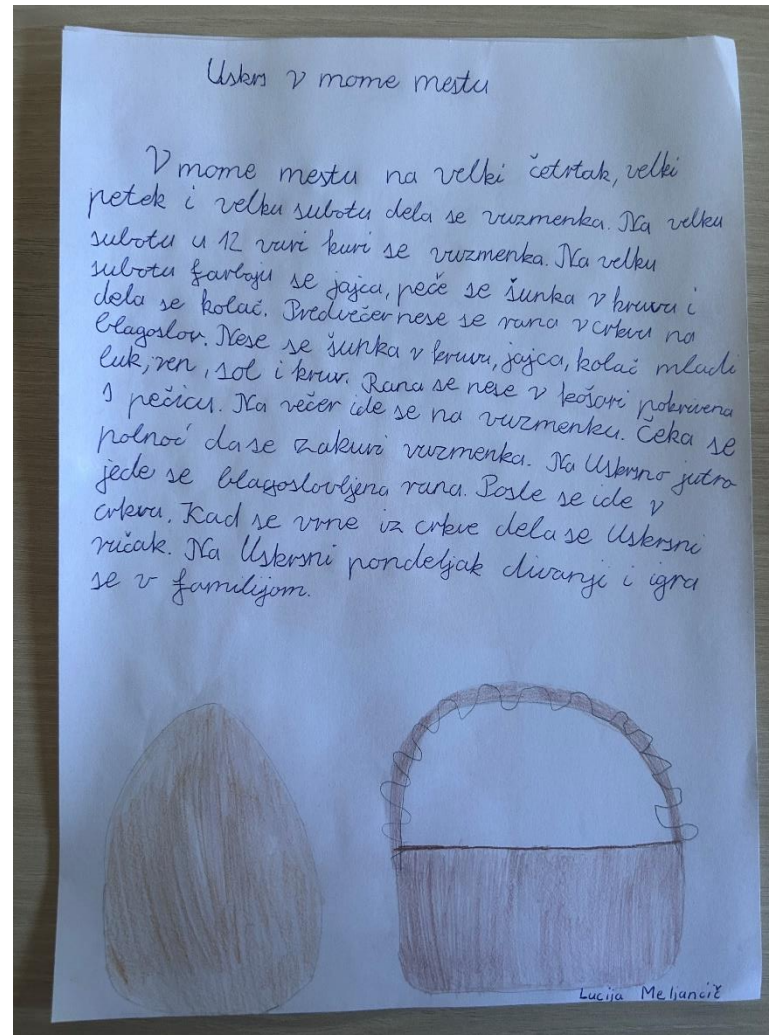 Uskrs v mome mestu
V mome mestu na velki četrtak, velki
petek i velku subotu dela se vuzmenka. Na velku
subotu u 12 vuri kuri se vuzmenka. Na velku
subotu farbaju se jajca, peče se šunka v kruvu i
dela se kolač. Predvečer nese se rana v crkvu na
blagoslov. Nese se šunka v kruvu, jajca, kolač mladi
luk, ren, sol i kruv. Rana se nese v košari pokrivena
s pečicu. Na večer ide se na vuzmenku. Čeka se
polnoć da se zakuri vuzmenka. Na Uskrsno jutro
jede se blagoslovljena rana. Posle se ide v
crkvu. Kad se vrne iz crkve dela se Uskrsni
ručak. Na Uskrsni pondeljak divanji i igra
se v familijom.
Lucija Meljančič